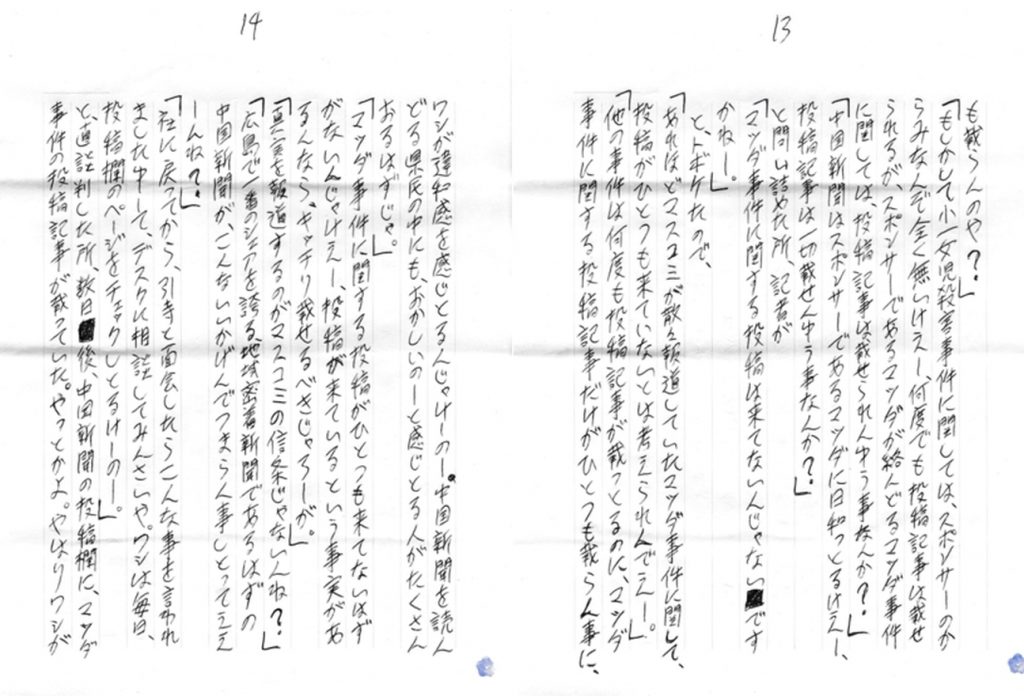 13
も載らんのや?」
「もしかして小一女児殺害事件に関しては、スポンサーのか
らみなんぞ全く無いけえー、何度でも投稿記事は載せ
られるが、スポンサーであるマツダが絡んどるマツダ事件
に関しては、投稿記事は載せられんゆう事なんか?」
「中国新聞はスポンサーであるマツダに日和っとるけえー、
投稿記事は一切載せんゆう事なんか?」
と問い詰めた所、記者が
「マツダ事件に関する投稿は来てないんじゃないですか
かねー。」
と、トボケたので、
「あれほどマスコミが散々報道していたマツダ事件に関して、
投稿がひとつも来ていないとは考えられんでえー。
他の事件は何度も投稿記事が載っとるのに、マツダ
事件に関する投稿記事だけがひとつも載らん事に、
14
ワシが違和感を感じとるんじゃけーのー。中国新聞を読ん
どる県民の中にも、おかしいのーと感じとる人がたくさん
おるはずじゃ。」
「マツダ事件に関する投稿がひとつも来てないはず
がないんじゃけえー、投稿が来ているという事実があ
るんなら、キッチリ載せるべきじゃろーが。」
「真実を報道するのがマスコミの信条じゃないんね?」
「広島で一番のシェアを誇る地域密着新聞であるはずの
中国新聞が、こんないいかげんでつまらん事しとってええ
ーんね?」
「社に戻ってから、引寺と面会したらこんな事を言われ
ました中ーて、デスクに相談してみんさいや。ワシは毎日、
投稿欄のページをチェックしとるけーのー。」
と、直談判した所、数日後、中国新聞の投稿欄に、マツダ
事件の投稿記事が載っていた。やっとかよ。やはりワシが